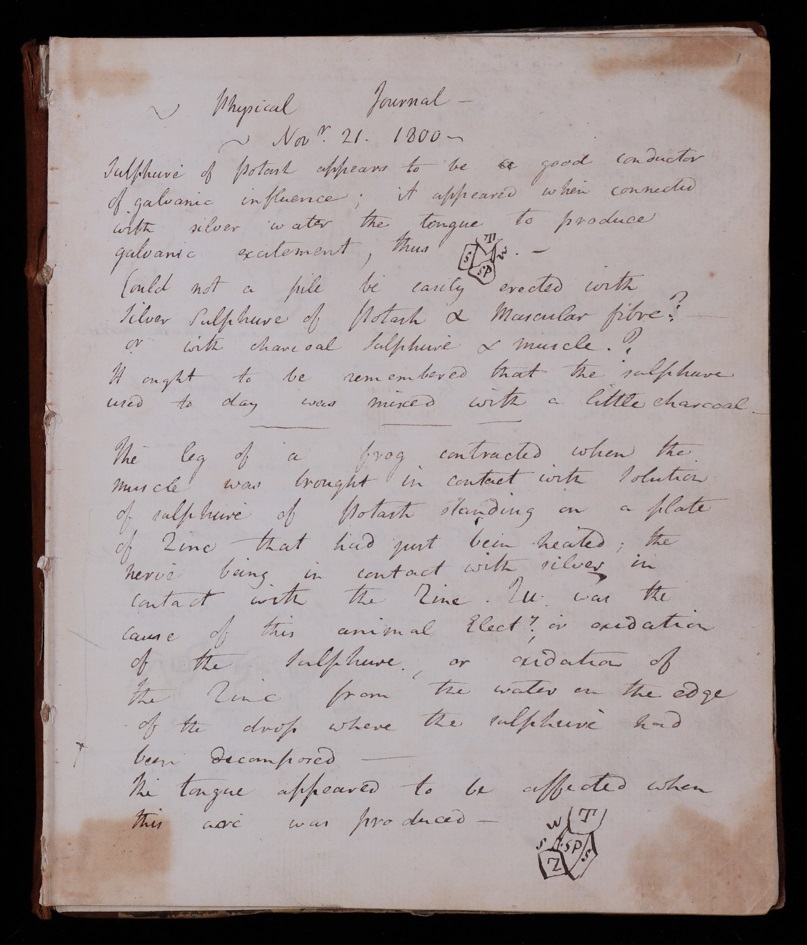 1
Physical Journal –
Novr. 21. 1800 –
Sulphure of Potash appears to be a good conductor
of galvanic influence; it appeared when connected
with silver water the tongue to produce
galvanic excitement, thus S T W SP . –
Could not a pile be easily erected with
Silver Sulphure of Potash & Muscular fibre?
or with charcoal Sulphure & muscle.?
It ought to be remembered that the sulphure
used to day was mixed with a little charcoal –
The leg of a frog contracted when the
muscle was brought in contact with Solution
of sulphure of Potash standing on a plate
of Zinc that had just been heated; the
nerve being in contact with silver in
contact with the Zinc. Qu. was the
cause of this animal Electy, or oxidation
of the Sulphure, or oxidation of
the Zinc from the water on the edge
of the drop where the sulphure had
been decomposed –
The tongue appeared to be affected when
this arc was produced – W T
S SP S
Z